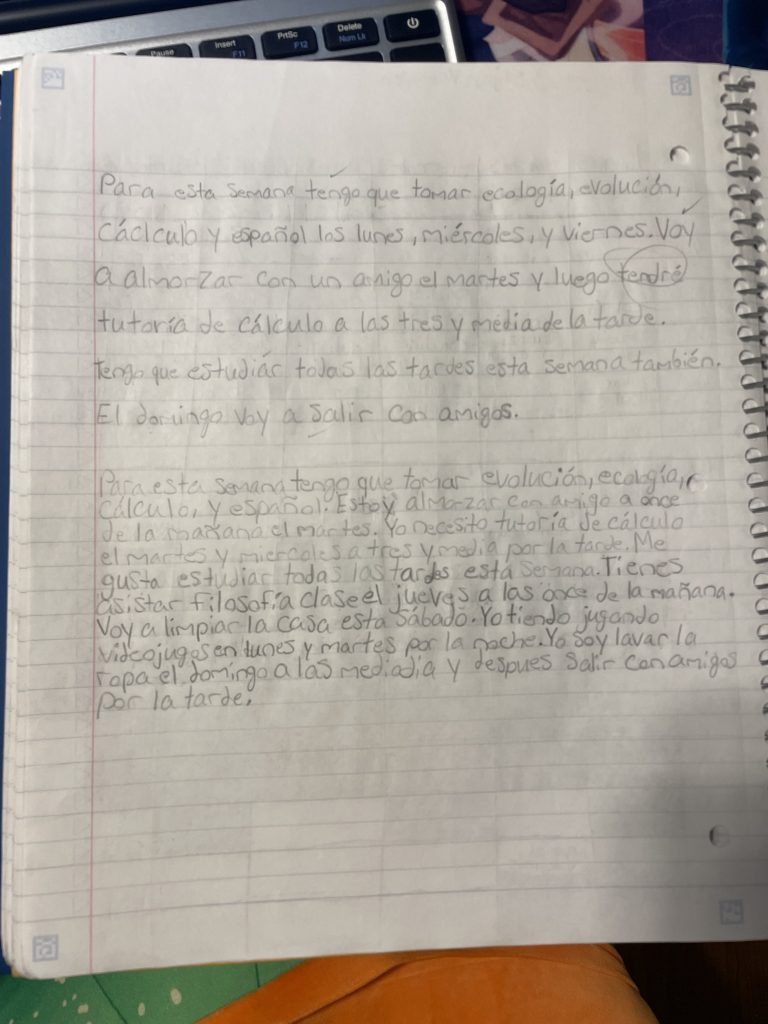 Pause
Insert
F11
PrtSc
F12
Delete
Num Lk
Para esta semana tengo que tomar ecología, evolución,
cáclculo y español los lunes, miércoles, y viernes. Voy
a almorzar con un amigo el martes y luego tendré
tutoría de cálculo a las tres y media de la tarde.
Tengo que estudiar todas las tardes esta semana también.
El domingo voy a salir con amigos.
Para esta semana tengo que tomar evolución, ecología,
cálculo, y español. Estoy almorzar con amigo a once
de la mañana el martes. Yo necesito tutoría de cálculo
el martes y miercoles a tres y media por la tarde. Me
gusta estudiar todas las tardes esta semana. Tienes
asistar filosofía clase el jueves a las once de la mañana.
Voy a limpiar la casa esta sábado. Yo tiendo jugando
videojugos en lunes y martes por la noche. Yo soy lavar la
ropa el domingo a las mediadia y despues salir con amigos
por la tarde.